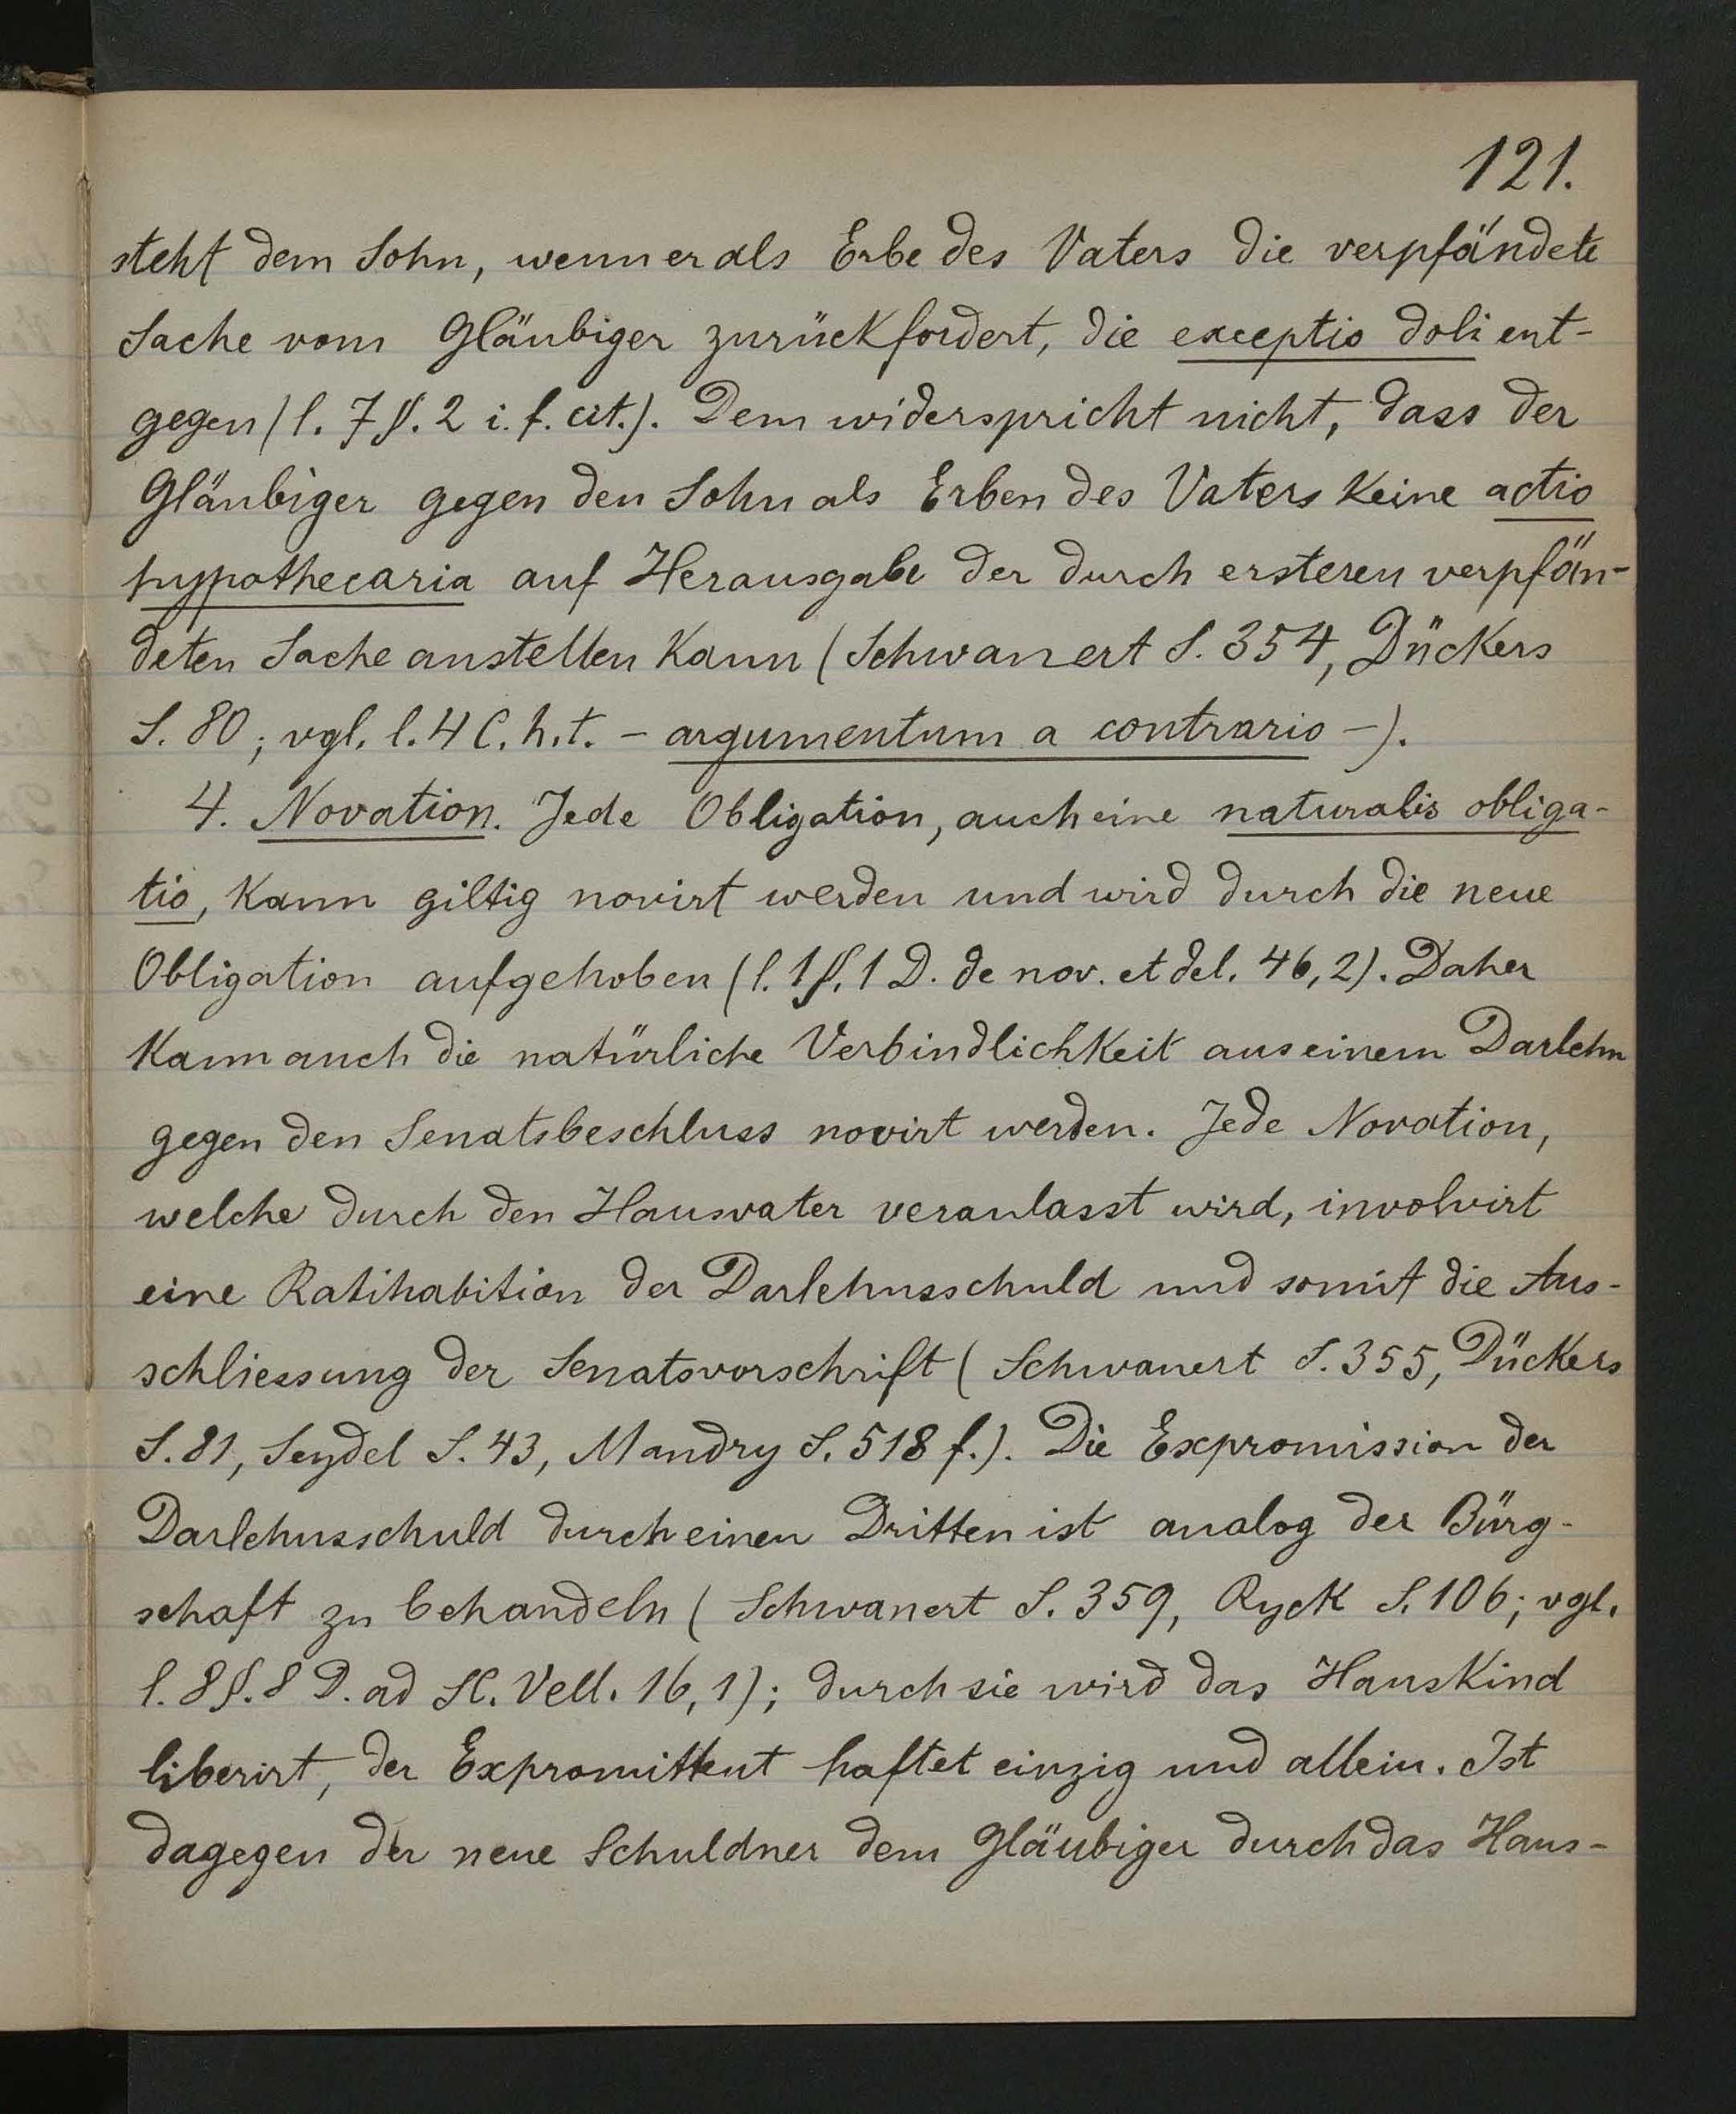 121.
steht dem Sohn, wenn er als Erbe des Vaters die verpfändete
Sache vom Gläubiger zurückfordert, die exceptio doli ent-
gegen (l. 7 §. 2 i. f. cit.). Dem widerspricht nicht, dass der
Gläubiger gegen den Sohn als Erben des Vaters keine actio
hypothecaria auf Herausgabe der durch ersteren verpfän-
deten Sache anstellen kann (Schwanert S. 354, Dückers
S. 80; vgl. l. 4 C. h. t. - argumentum a contrario -).
4. Novation. Jede Obligation, auch eine naturalis obliga-
tio, kann giltig novirt werden und wird durch die neue
Obligation aufgehoben (l. 1 §. 1 D. de nov. et del. 46, 2). Daher
kann auch die natürliche Verbindlichkeit aus einem Darlehn
gegen den Senatsbeschluss novirt werden. Jede Novation,
welche durch den Hausvater veranlasst wird, involvirt
eine Ratihabition der Darlehnsschuld und somit die Aus-
schliessung der Senatsvorschrift (Schwanert S. 355, Dückers
S. 81, Seydel S. 43, Mandry S. 518 f.). Die Expromission der
Darlehnsschuld durch einen Dritten ist analog der Bürg-
schaft zu behandeln (Schwanert S. 359, Ryck S. 106; vgl.
l. 8 §. 8 D. ad SC. Vell. 16, 1); durch sie wird das Hauskind
liberirt, der Expromittent haftet einzig und allein. Ist
dagegen der neue Schuldner dem Gläubiger durch das Haus-